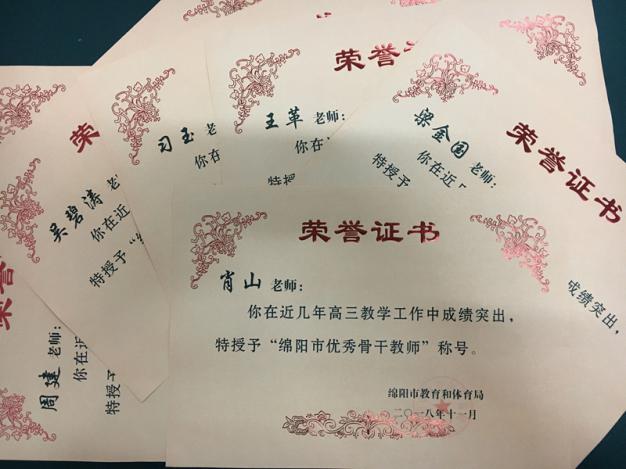 荣誉证书
王革 老师:
你在
特授
荣誉证书
梁金国 老师:
你在近
特授予
成绩突出,
习玉 老
你在
荣
吴碧涛 老
你在近
特授予“
荣
周建 老师:
你在近
特授予
荣誉证书
肖山 老师:
你在近几年高三教学工作中成绩突出,
特授予“绵阳市优秀骨干教师”称号。
绵阳市教育和体育局
二〇一八年十一月